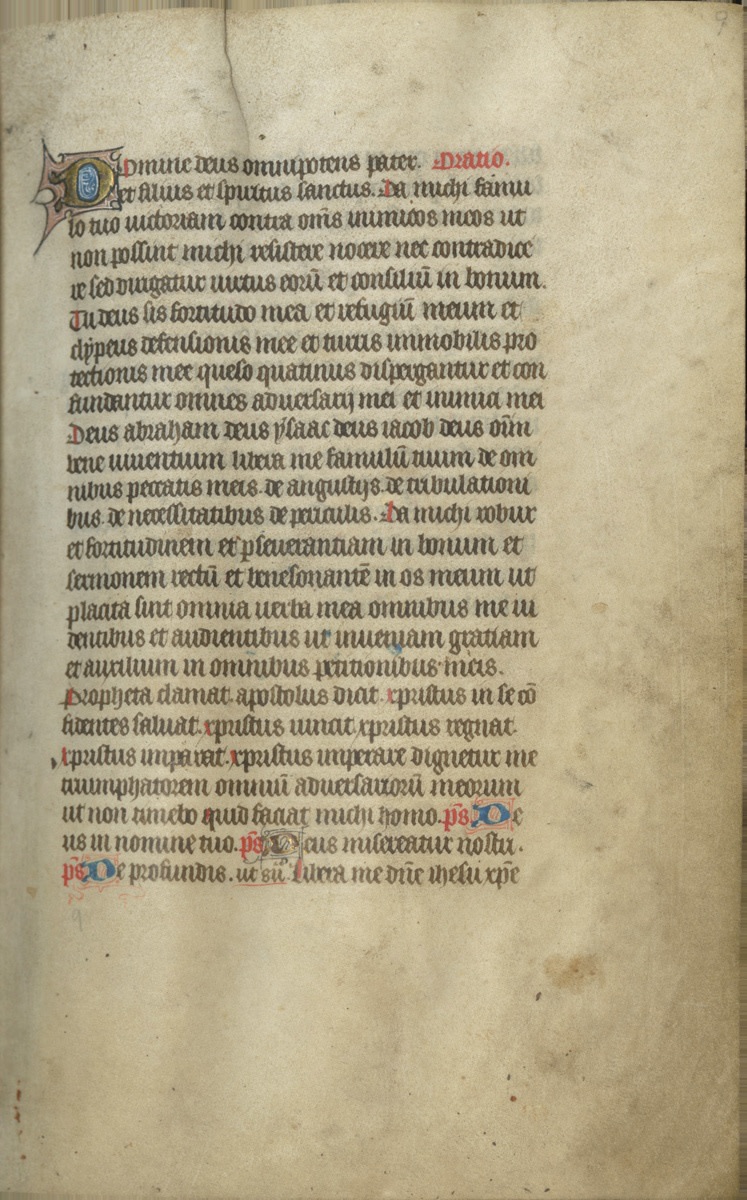 9
Domine deus omnipotens pater. Oratio.
et filius et spiritus sanctus. Da michi famu
lo tuo uictoriam contra om̄s inimicos meos ut
non possint michi resistere nocere nec contradice
re sed dirigatur uirtus eorū et consiliū in bonum.
Tu deus sis fortitudo mea et refugiū meum et
clẏpeus defensionis mee et turris immobilis pro
tectionis mee queso quatinus dispergantur et con
fundantur omnes aduersarij mei et inimici mei
Deus abraham deus ẏsaac deus iacob deus oīm
bene uiuentium libera me famulū tuum de om
nibus peccatis meis. de angustijs. de tribulationi
bus. de necessitatibus de periculis. Da michi robur
et fortitudinem et ꝑseuerantiam in bonum et
sermonem rectū et benesonantē in os meum ut
placita sint omnia uerba mea omnibus me ui
dentibus et audientibus ut inueniam gratiam
et auxilium in omnibus petitionibus meis.
Propheta clamat. apostolus dicit. xpristus in se cō
fidentes saluat. xpristus uincit. xpristus regnat.
xpristus imparat. xpristus imperare dignetur me
triumphatorem omniū aduersariorū meorum
ut non timebo quid faciat michi homo. p̄s. De
us in nomine tuo. p̄s. Deus misereatur nostri.
p̄s. De profundis. ut sū Libera me dn̄e ihesu xp̄e
9